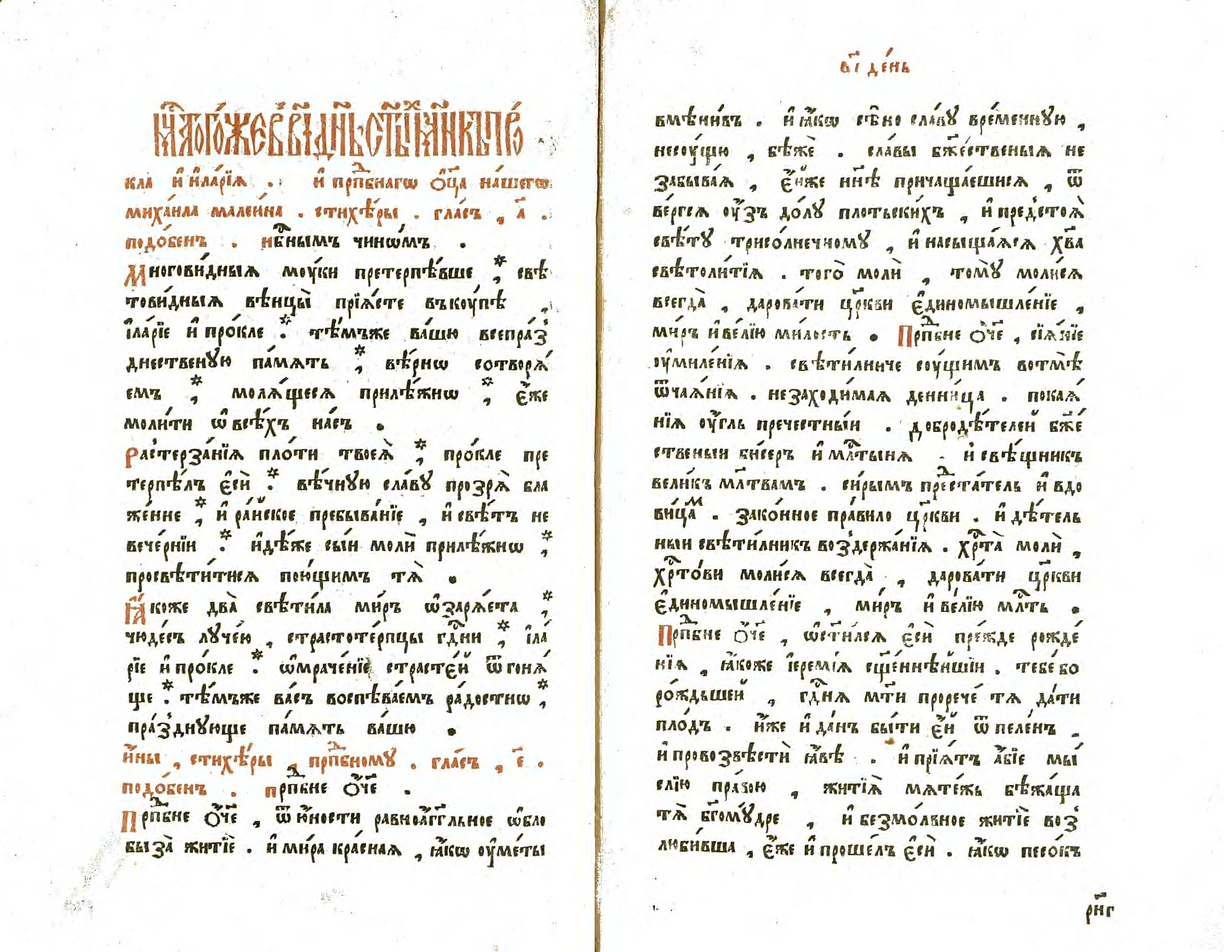 Мц҃а тогѡ́же в҃ві дн҃ь ст҃ы́хъ мч҃нкъ про́
кла и҆ и҆ла́рїа . и҆ прпⷣбнагѡ ѻ҆ц҃а на́шегѡ
михаи́ла малеи́на . стихѣ́ры . гла́съ , а҃ .
подо́бенъ . нбⷭ҇нымъ чинѡ́мъ .
Многови́дныѧ моу́ки претерпѣ́вше , свѣ
тови́дныѧ вѣнцы̀ прїѧ́сте въкоу́пѣ ,
і҆ла́рїе и҆ про́кле . тѣ́мъже ва́шю всепра́з
днественꙋю па́мѧть , вѣ́рнѡ сотворѧ́
емъ , молѧ́щесѧ прилѣ́жнѡ , є҆́же
моли́ти ѡ҆ всѣ́хъ на́съ .
Растерза́нїѧ пло́ти твоеѧ̀ , про́кле пре
терпѣ́лъ є҆сѝ . вѣ́чнꙋю сла́вꙋ прозрѧ̀ бла
же́нне , и҆ ра́йское пребыва́нїе , и҆ свѣ́тъ не
вече́рнїи . и҆дѣ́же сы́и молѝ прилѣ́жнѡ ,
просвѣти́тисѧ пою́щимъ тѧ̀ .
Ꙗ҆́коже два̀ свѣти́ла ми́ръ ѡ҆зарѧ́ета ,
чюде́съ лꙋче́ю , страстоте́рпцы гдⷭ҇ни , і҆ла́
рїе и҆ про́кле . ѡ҆мраче́нїе страсте́й ѿгонѧ́
ще . тѣ́мъже ва́съ воспѣва́емъ ра́достнѡ ,
пра́зднꙋюще па́мѧть ва́шю .
и҆́ны , стихѣ́ры , прпⷣбномꙋ . гла́съ , є҃ .
подо́бенъ . прпⷣбне ѻ҆́ч҃е .
Прпⷣбне ѻ҆́ч҃е , ѿ ю҆́ности равноа́гг҃льное ѡ҆бло
быза̀ житїѐ . и҆ ми́ра кра́снаѧ , ꙗ҆́кѡ ᲂу҆ме́ты
в҃і де́нь
вмѣни́въ . и҆ ꙗ҆́кѡ сѣ́но сла́вꙋ вре́меннꙋю ,
несоу́щю , бѣ́же . сла́вы бж҃е́ственыѧ не
забыва́ѧ , є҆́ѧже нн҃ѣ причаща́ешисѧ , ѿ
ве́ргсѧ ᲂу҆́зъ до́лꙋ пло́тьскихъ , и҆ предстоѧ̀
свѣ́тꙋ трисо́лнечномꙋ , и҆ насыща́ѧсѧ хв҃а
свѣтоли́тїѧ . того̀ молѝ , томꙋ̀ моли́сѧ
всегда̀ , дарова́ти цр҃кви є҆диномышле́нїе ,
ми́ръ и҆ ве́лїю ми́лость . Прпⷣбне ѻ҆́ч҃е , сїѧ́нїе
ᲂу҆миле́нїѧ . свѣти́лниче соу́щимъ вотмѣ̀
ѿча́ѧнїѧ . незаходи́маѧ денни́ца . покаѧ́
нїѧ ᲂу҆́гль пречестны́и . добродѣ́телей бж҃е́
ственыи би́серъ и҆ млⷭ҇тынѧ . и҆ свѣ́щникъ
вели́къ мл҃твамъ . си́рымъ преⷣста́тель и҆ вдо
ви́цаⷨ . зако́нное пра́вило цр҃кви . и҆ дѣ́тель
ныи свѣти́лникъ воздержа́нїѧ . хрⷭ҇та̀ молѝ ,
хрⷭ҇то́ви моли́сѧ всегда̀ , дарова́ти цр҃кви
є҆диномышле́нїе , ми́ръ и҆ ве́лїю млⷭ҇ть .
Прпⷣбне ѻ҆́ч҃е , ѡ҆ст҃и́лсѧ є҆сѝ пре́жде рожде́
нїѧ , ꙗ҆́коже і҆еремі́ѧ сщ҃еннѣ́йшїи . тебе́ бо
ро́ждьшей , гдⷭ҇нѧ мт҃и прорече́ тѧ да́ти
пло́дъ . и҆́же и҆ да́нъ бы́ти є҆́й ѿ пеле́нъ .
и҆ провозвѣстѝ ꙗ҆́вѣ . и҆ прїѧ́тъ а҆́бїе мы́
слїю пра́вою , житїѧ̀ мѧте́жь бѣжа́ща
тѧ̀ бг҃омꙋ́дре , и҆ безмо́лвное житїѐ воз
люби́вша , є҆́же и҆ проше́лъ є҆сѝ . ꙗ҆́кѡ песо́къ
рн҃г